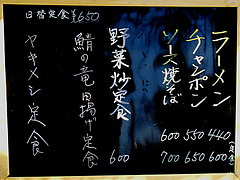 ラーメン 440 600
(定食)
チャンポン 550 650
ソース焼そば 600 700
野菜炒定食 600
鯖の竜田揚げ定食
ヤキメシ定食
日替定食￥650